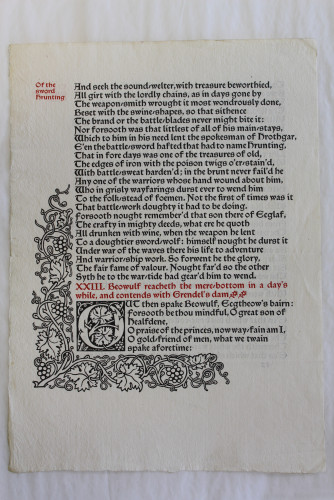 Of the
sword
Hrunting
And seek the sound-welter, with treasure beworthied,
All girt with the lordly chains, as in days gone by
The weapon-smith wrought it most wondrously done,
Beset with the swine-shapes, so that sithence
The brand or the battle-blades never might bite it:
Nor forsooth was that littlest of all of his mainstays,
Which to him in his need lent the spokesman of Hrothgar,
E'en the battle-sword hafted that had to name Hrunting.
That in fore days was one of the treasures of old,
The edges of iron with the poison twigs o'er-stain'd,
With battle-sweat harden'd; in the brunt never fail'd he
Any one of the warriors whose hand wound about him,
Who in grisly wayfarings durst ever to wend him
To the folk-stead of foemen. Not the first of times was it
That battle-work doughty it had to be doing.
Forsooth nought remember'd that son there of Ecglaf,
The crafty in mighty deeds, what ere he quoth
All drunken with wine, when the weapon he lent
To a doughtier sword-wolf: himself nought he durst it
Under war of the waves there his life to adventure
And warrior-ship work. So forwent he the glory,
The fair fame of valour. Nought far'd so the other
Syth he to the war-tide had gear'd him to wend.
XXIII. Beowulf reacheth the mere-bottom in a day's
while, and contends with Grendel's dam.
OUT then spake Beowulf, Ecgtheow's bairn:
Forsooth be thou mindful, O great son of
Healfdene,
O praise of the princes, now way-fain am I,
O gold-friend of men, what we twain
spake aforetime: